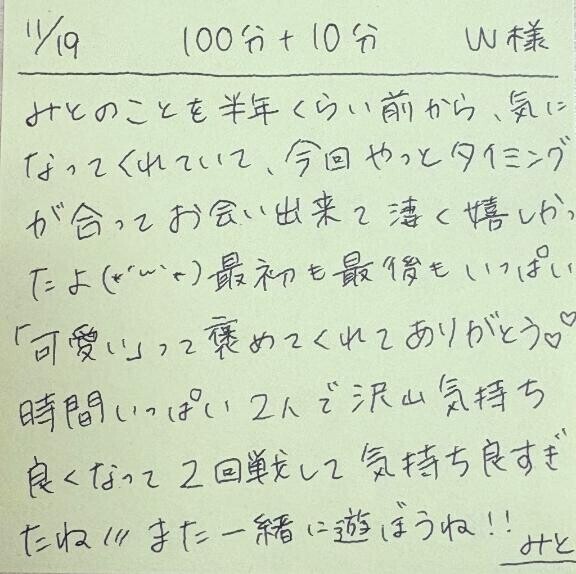 11/19 100分+10分 W様
みとのことを半年くらい前から、気に
なってくれていて、今回やっとタイミング
が合ってお会い出来て凄く嬉しかっ
たよ(*´ω`*)最初も最後もいっぱい
「可愛い」って褒めてくれてありがとう♡♡
時間いっぱい2人で沢山気持ち
良くなって2回戦して気持ち良すぎ
たね!!!また一緒に遊ぼうね!!
みと